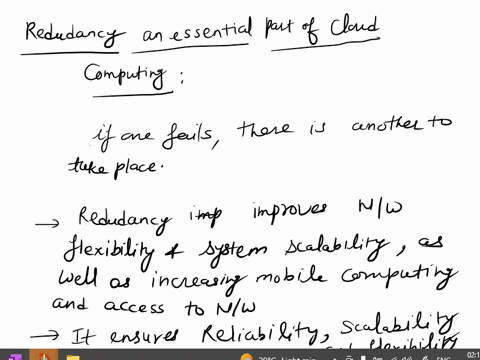 Redudancy an essential part of Cloud
Computing :
if one fails, there is another to
take place.
→ Redudancy imp improves N/W
flexibility & system scalability, as
well as increasing mobile computing
and access to N/W
→ It ensures Reliability, Scalability
flexibility
ENG